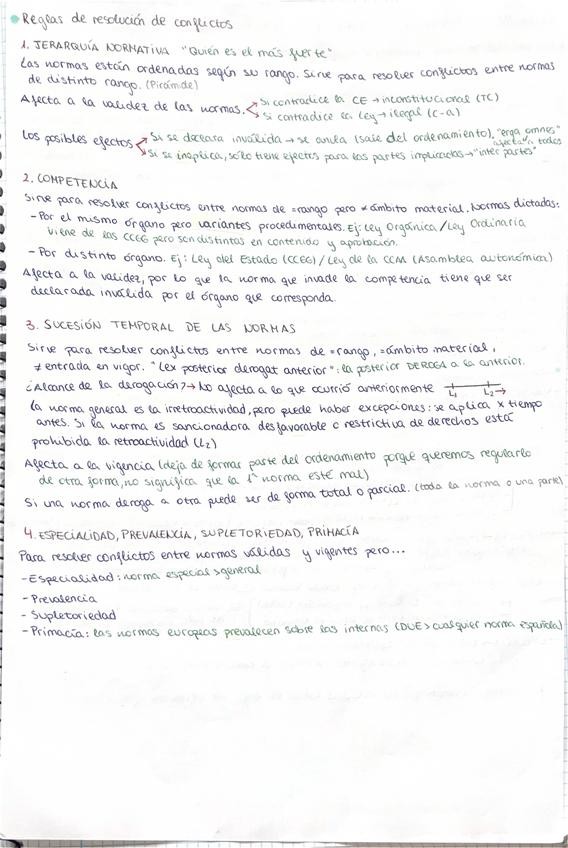 Reglas de resolución de conflictos
1. JERARQUÍA NORMATIVA "Quién es el más fuerte"
Las normas están ordenadas según su rango. Sirve para resolver conflictos entre normas
de distinto rango. (Pirámide)
Afecta a la validez de las normas. Si contradice la CE → inconstitucional (TC)
Si contradice la Ley → ilegal (C-A)
Los posibles efectos Si se declara inválida → se anula (sale del ordenamiento), "erga omnes" afecta a todos
Si se inaplica, sólo tiene efectos para las partes implicadas → "inter partes"
2. COMPETENCIA
Sirve para resolver conflictos entre normas de = rango pero ≠ ámbito material. Normas dictadas:
- Por el mismo órgano pero variantes procedimentales. Ej: Ley Orgánica / Ley Ordinaria
viene de las CCGG pero son distintas en contenido y aprobación.
- Por distinto órgano. Ej: Ley del Estado (CCGG) / Ley de la CCAA (Asamblea autonómica)
Afecta a la validez, por lo que la norma que invade la competencia tiene que ser
declarada inválida por el órgano que corresponda.
3. SUCESIÓN TEMPORAL DE LAS NORMAS
Sirve para resolver conflictos entre normas de = rango, = ámbito material,
≠ entrada en vigor. "Lex posterior derogat anterior": la posterior DEROGA a la anterior.
¿Alcance de la derogación? → No afecta a lo que ocurrió anteriormente L1 L2
La norma general es la irretroactividad, pero puede haber excepciones: se aplica x tiempo
antes. Si la norma es sancionadora desfavorable o restrictiva de derechos está
prohibida la retroactividad (L2)
Afecta a la vigencia (deja de formar parte del ordenamiento porque queremos regularlo
de otra forma, no significa que la 1ª norma esté mal)
Si una norma deroga a otra puede ser de forma total o parcial. (toda la norma o una parte)
4. ESPECIALIDAD, PREVALENCIA, SUPLETORIEDAD, PRIMACÍA
Para resolver conflictos entre normas válidas y vigentes pero...
- Especialidad: norma especial > general
- Prevalencia
- Supletoriedad
- Primacía: las normas europeas prevalecen sobre las internas (DUE > cualquier norma española)